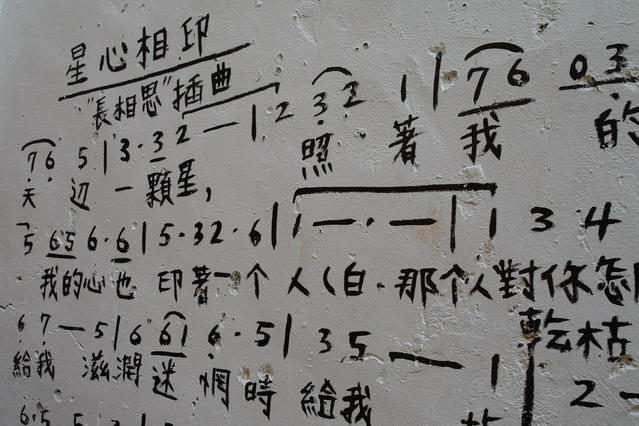 星心相印
"長相思"插曲
7 6 5 | 3 · 3 2 — | 2 3 2 1 | 7 6 0 3
天 边 一顆星, 照 著 我 的
5 6 5 6 · 6 | 5 · 3 2 · 6 | 1 — · — | 1 3 4
我的心也 印著一个 人(白·那个人對你怎
6 7 — 5 | 6 6 1 6 · 5 | 3 5 — 1 2 —
給我 滋潤 迷惘時 給我 乾枯